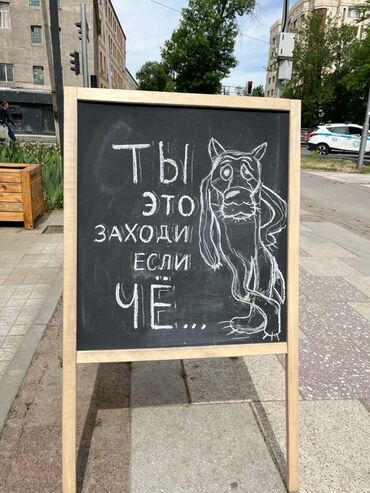 ТЫ
ЭТО
ЗАХОДИ
ЕСЛИ
ЧЁ...